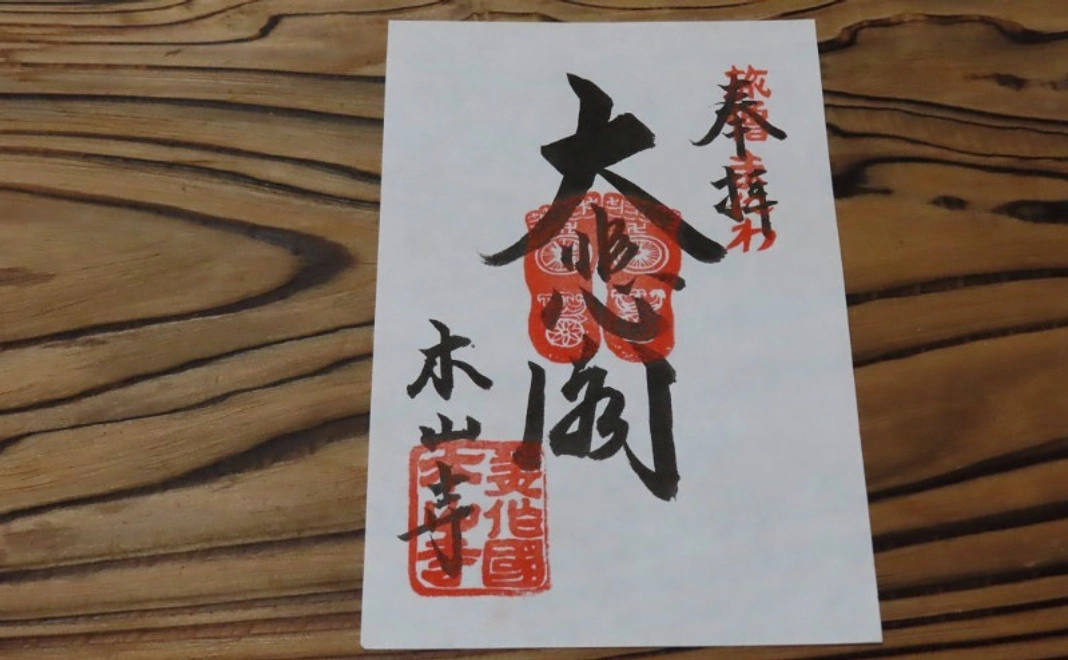 奉拝
大悲閣
木山寺
美作國
木山寺